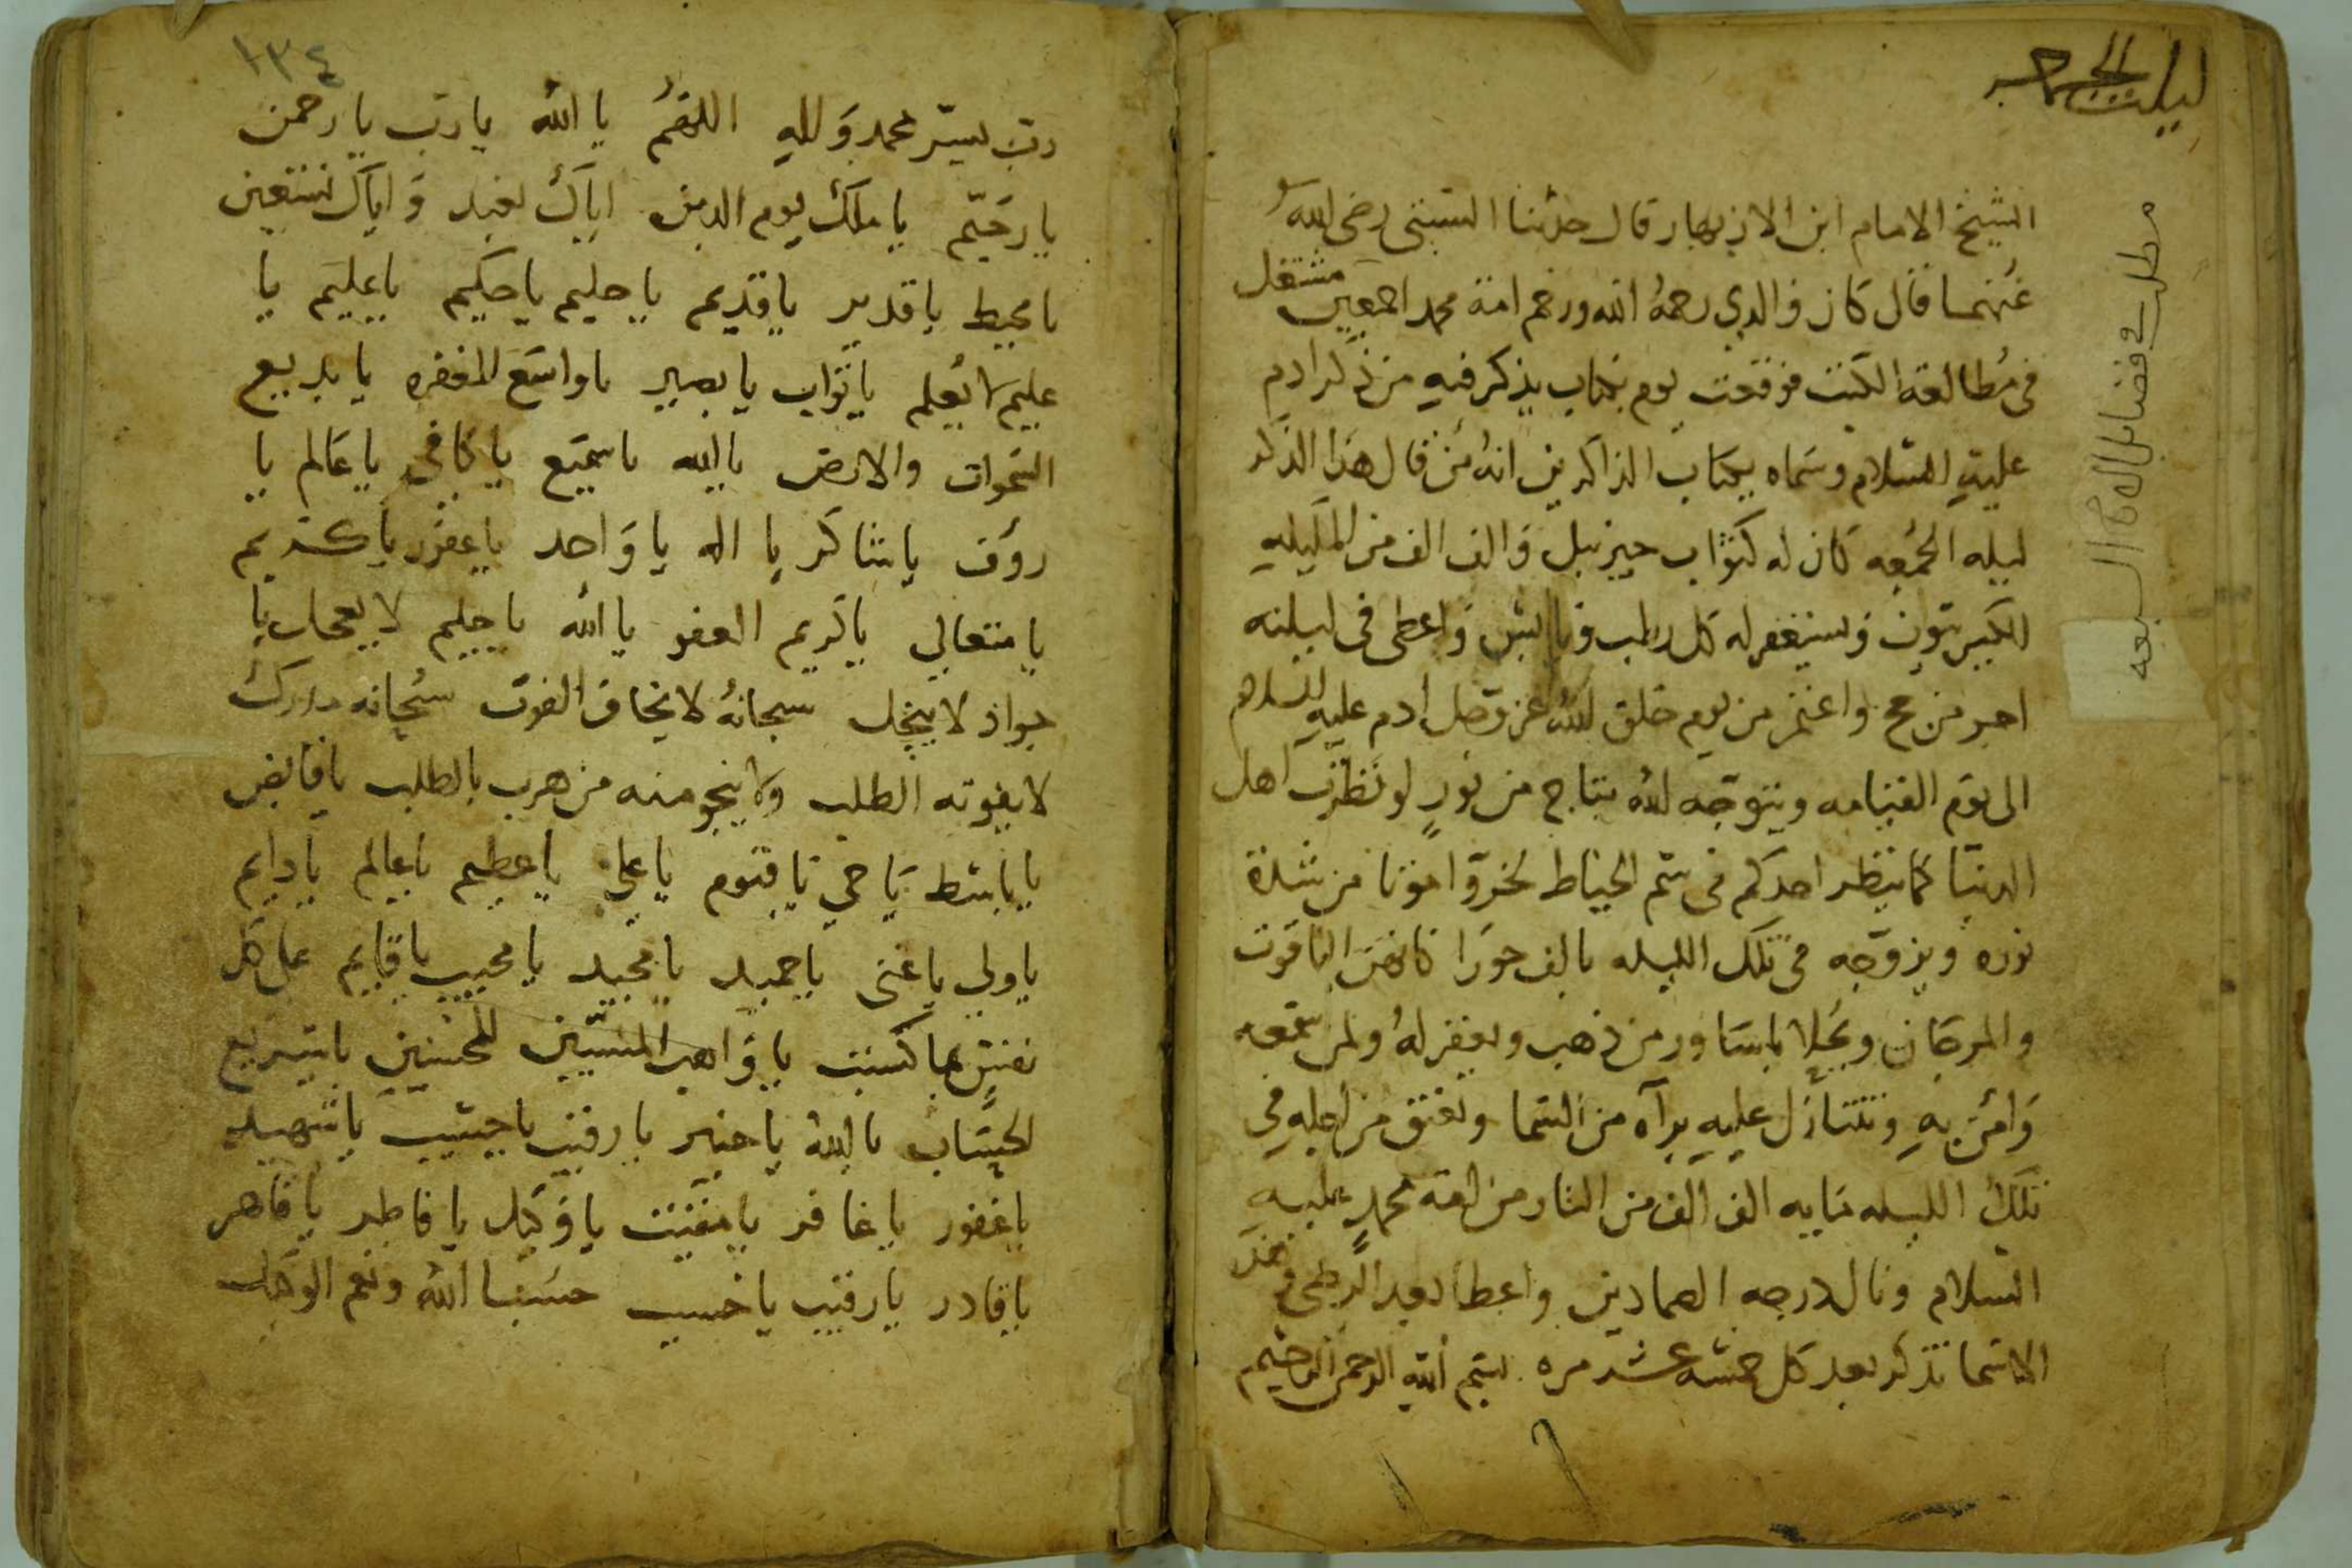 ليلة الجمعه
الشيخ الامام ابن الازبهار قال حدثنا السبتى رضى الله
عنهما قال كان والدي رحمه الله ورحم امة محمد اجمعين مشتغل
فى مطالعة الكتب فوقعت يوم بكتاب يذكر فيه من ذكر ادم
عليه السلام وسماه بكتاب الذاكرين انه من قال هذا الذكر
ليله الجمعه كان له كثواب جبرئيل والف الف من المليكه
الكبيرتون ويستغفر له كل رطب ويابس واعطى فى ليلته
اجر من حج واعتمر من يوم خلق الله عز وجل ادم عليه السلام
الى يوم القيامه ويتوجه الله بتاج من نور لو نظرت اهل
الدنيا كما ينظر احدكم فى سم الخياط لخروا موتا من شدة
نوره ويزوجه فى تلك الليله بالف حورا كانهن الياقوت
والمرجان ويحلا باساور من ذهب ويغفر له ولمن سمعه
وامن به وتتنازل عليه برآه من السما وتعتق من اجله فى
تلك الليله مايه الف الف من النار من امة محمد عليه
السلام ونال درجه الصادين واعطا بعد الرضى وهذه
الاسما تذكر بعد كل خمسه عشر مره بسم الله الرحمن الرحيم
مطلب فى فضائل السبعه
١٣٤
رب يسر محمد وللهِ اللهم يا الله يا رب يا رحمن
يا رحيم يا ملك يوم الدين اياك نعبد واياك نستعين
يا محيط يا قدير يا قديم يا حليم يا حكيم يا عليم يا
عليم لا يعلم يا تواب يا بصير يا واسع المغفره يا بديع
السموات والارض يا الله يا سميع يا كافى يا عالم يا
روف يا شاكر يا اله يا واحد يا غفور يا كريم
يا متعالي يا كريم العفو يا الله يا حليم لا يعجل يا
جواد لا يبخل سبحانه لا يخاف الفوت سبحانه مدرك
لا يفوته الطلب ولا ينجو منه من هرب بالطلب يا قابض
يا باسط يا حي يا قيوم يا علي يا عظيم يا عالم يا دايم
يا ولي يا غنى يا حميد يا مجيد يا مجيب يا قايم على كل
نفس بما كسبت يا واهب المسيين للمحسنين يا سريع
الحساب يا الله يا خبير يا رقيب يا حسيب يا شهيد
يا غفور يا غافر يا مقيت يا وكيل يا فاطر يا قاهر
يا قادر يا رقيب يا حسيب حسبنا الله ونعم الوكيل